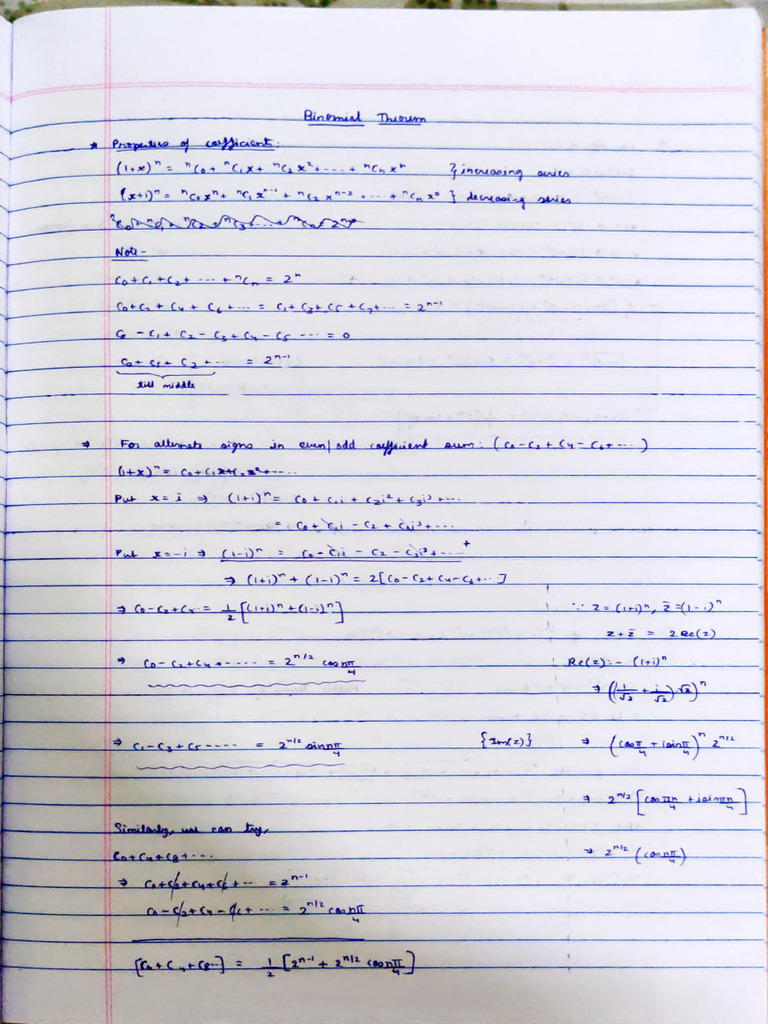 Binomial Theorem
* Properties of coefficient:
(1+x)ⁿ = ⁿC₀ + ⁿC₁x + ⁿC₂x² + ···· + ⁿCₙxⁿ } increasing series
(x+1)ⁿ = ⁿC₀xⁿ + ⁿC₁xⁿ⁻¹ + ⁿC₂xⁿ⁻² ···· + ⁿCₙx⁰ } decreasing series
Note-
C₀ + C₁ + C₂ + ···· + ⁿCₙ = 2ⁿ
C₀ + C₂ + C₄ + C₆ + ··· = C₁ + C₃ + C₅ + C₇ + ··· = 2ⁿ⁻¹
C₀ - C₁ + C₂ - C₃ + C₄ - C₅ ···· = 0
C₀ + C₁ + C₂ + ···· = 2ⁿ⁻¹
till middle
⇒ For alternate signs in even/odd coefficient sum: (C₀ - C₂ + C₄ - C₆ + ····)
(1+x)ⁿ = C₀ + C₁x + C₂x² + ····
Put x = i ⇒ (1+i)ⁿ = C₀ + C₁i + C₂i² + C₃i³ + ····
= C₀ + C₁i - C₂ + C₃i³ + ····
Put x = -i ⇒ (1-i)ⁿ = C₀ - C₁i - C₂ - C₃i³ + ···· +
⇒ (1+i)ⁿ + (1-i)ⁿ = 2[C₀ - C₂ + C₄ - C₆ + ···]
⇒ C₀ - C₂ + C₄.... = 1/2 [(1+i)ⁿ + (1-i)ⁿ]
∵ z = (1+i)ⁿ, z̄ = (1-i)ⁿ
z + z̄ = 2Re(z)
⇒ C₀ - C₂ + C₄ + ····· = 2^(n/2) cos nπ/4
Re(z):- (1+i)ⁿ
⇒ ((1/√2 + i/√2)√2)ⁿ
⇒ C₁ - C₃ + C₅ ----- = 2^(n/2) sin nπ/4 {Im(z)}
⇒ (cos π/4 + i sin π/4)ⁿ 2^(n/2)
⇒ 2^(n/2) [cos πn/4 + i sin πn/4]
⇒ 2^(n/2) (cos nπ/4)
Similarly, we can try,
C₀ + C₄ + C₈ + ···
⇒ C₀ + C₂ + C₄ + C₆ + ··· = 2ⁿ⁻¹
C₀ - C₂ + C₄ - C₆ + ···· = 2^(n/2) cos nπ/4
[C₀ + C₄ + C₈...] = 1/2 [2ⁿ⁻¹ + 2^(n/2) cos nπ/4]